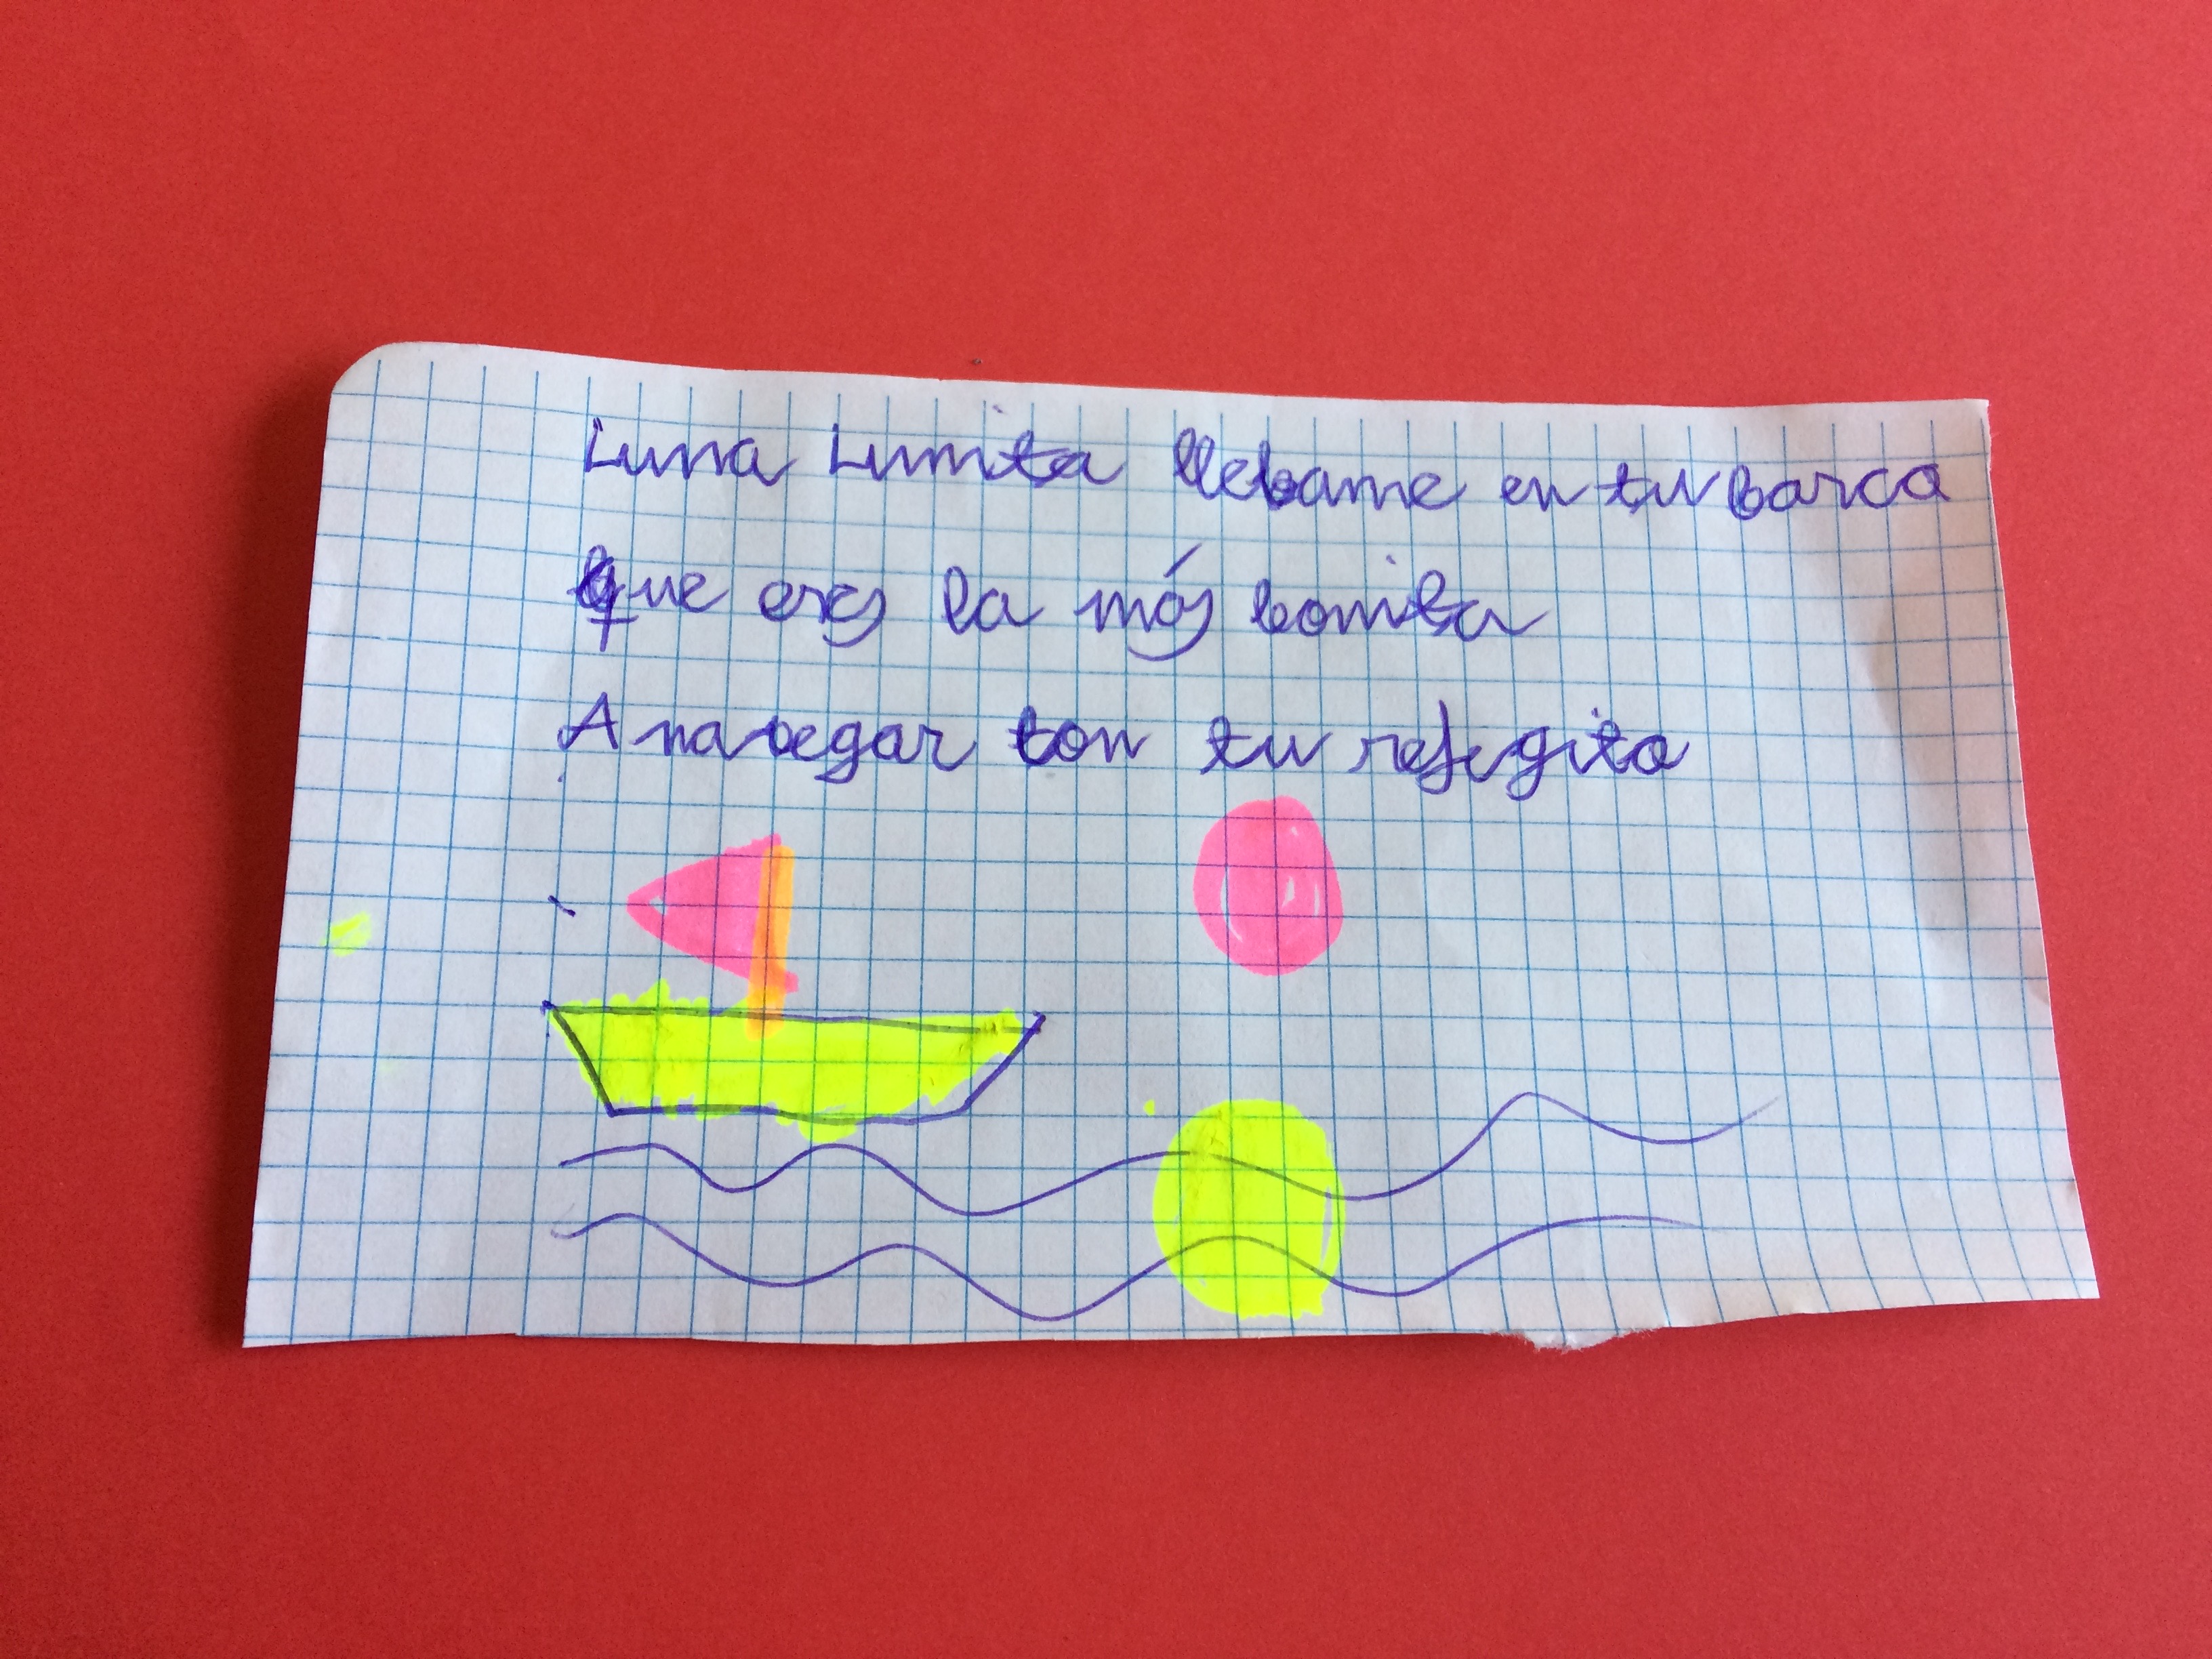 Luna Lunita llebame en tu barca
que eres la más bonita
A navegar con tu reflegito